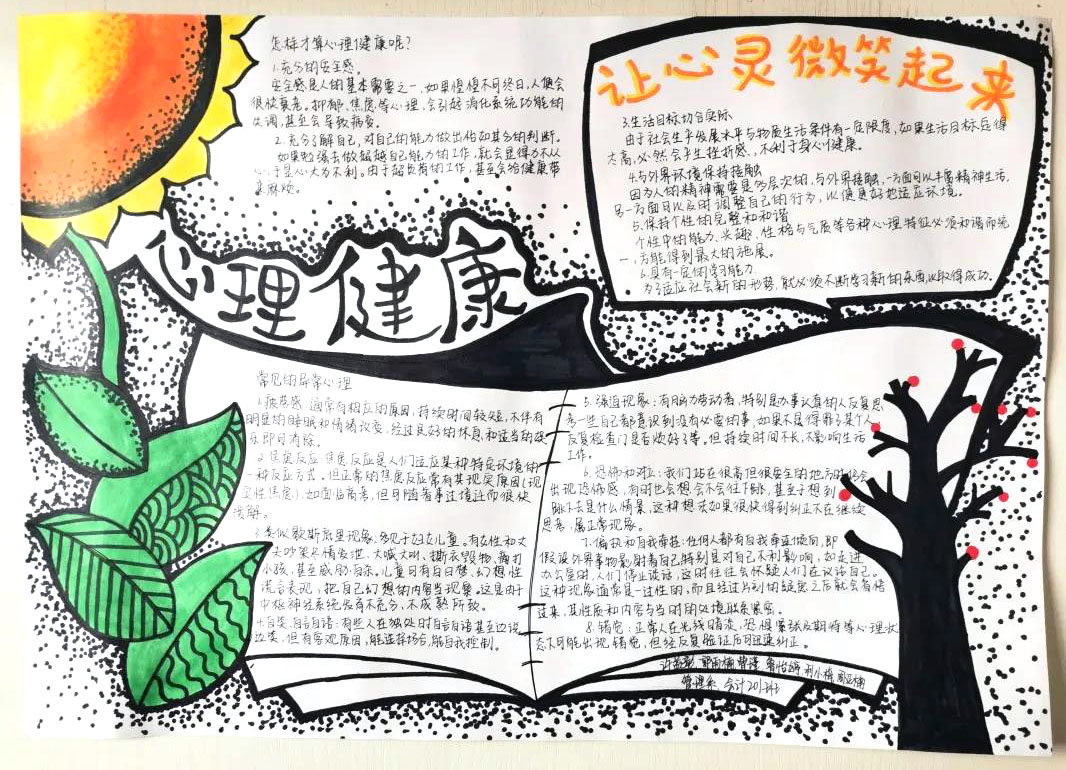 怎样才算心理健康呢?
1.充分的安全感。
安全感是人的基本需要之一,如果惶惶不可终日,人便会
很快衰老。抑郁、焦虑等心理,会引起消化系统功能的
失调,甚至会导致病变。
2.充分了解自己,对自己的能力做出恰如其分的判断。
如果勉强去做超越自己能力的工作,就会显得力不从
心,于身心大为不利。由于超负荷的工作,甚至会给健康带
来麻烦。
让心灵微笑起来
3.生活目标切合实际
由于社会生产发展水平与物质生活条件有一定限度,如果生活目标定得
太高,必然会产生挫折感,不利于身心健康。
4.与外界环境保持接触
因为人的精神需要是多层次的,与外界接触,一方面可以丰富精神生活,
另一方面可以及时调整自己的行为,以便更好地适应环境。
5.保持个性的完整和和谐
个性中的能力、兴趣、性格与气质等各种心理特征必须和谐而统
一,方能得到最大的施展。
6.具有一定的学习能力
为了适应社会新的形势,就必须不断学习新的东西,以取得成功。
心理健康
常见的异常心理
1.疲劳感 通常有相应的原因,持续时间较短,不伴有
明显的睡眠和情绪改变,经过良好的休息和适当的娱
乐即可消除。
2.焦虑反应 焦虑反应是人们适应某种特定环境的
一种反应方式。但正常的焦虑反应常有其现实原因(现
实性焦虑),如面临高考,但可随着事过境迁而很快
缓解。
3.类似歇斯底里现象,多见于妇女儿童。有女性和丈
夫吵架尽情发泄、大喊大叫、撕衣毁物、痛打
小孩,甚至威胁自杀。儿童可有白日梦、幻想性
谎言表现,把自己幻想的内容当现实。这是由于
中枢神经系统发育不充分、不成熟所致。
4.自笑、自言自语:有些人在独处时自言自语甚至边说
边笑,但有客观原因,能选择场合,能自我控制。
5.强迫现象:有脑力劳动者,特别是办事认真的人反复思
考一些自己都意识到没有必要的事,如果不是得罪了某个人
反复检查门是否锁好了等。但持续时间不长,不影响生活
工作。
6.恐怖和对立:我们站在很高但很安全的地方时仍会
出现恐怖感,有时也会想会不会往下跳,甚至于想到
跳下去是什么情景,这种想法如果很快得到纠正不在继续
思考,属正常现象。
7.偏执和自我牵挂:任何人都有自我牵连倾向,即
假设外界事物影射着自己特别是对自己不利影响,如走进
办公室时,人们停止谈话,这时往往会怀疑人们在议论自己。
这种现象通常是一过性的,而且经过片刻的疑虑之后就会省悟
过来,其性质和内容与当时的处境联系紧密。
8.错觉:正常人在光线暗淡、恐惧紧张及期待等心理状
态下可能出现错觉,但经反复验证后可迅速纠正。
管理系 会计